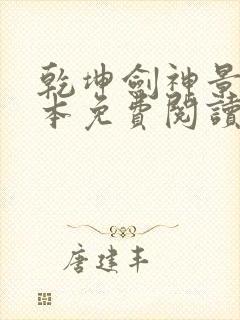 乾坤劍神景
本免費閱讀
唐建丰